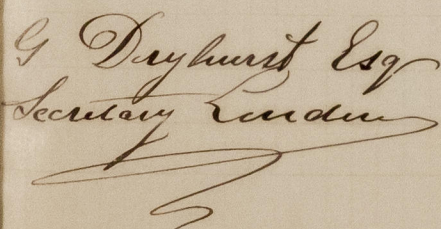 G Dryhurst Esq
Secretary London